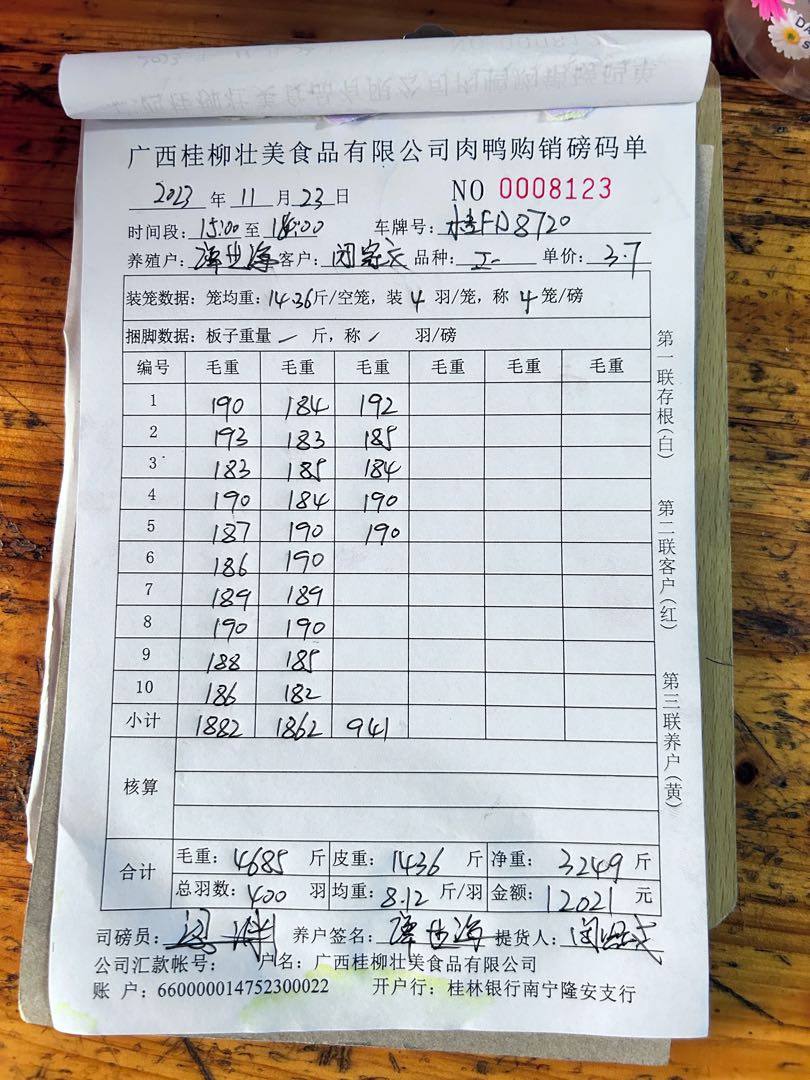 广西桂柳壮美食品有限公司肉鸭购销磅码单
2023 年 11 月 23 日 NO 0008123
时间段: 15:00 至 18:00 车牌号: 桂FD8720
养殖户: 谭世海 客户: 品种: 单价: 3.7
装笼数据: 笼均重: 14.36 斤/空笼, 装 4 羽/笼, 称 4 笼/磅
捆脚数据: 板子重量 / 斤, 称 / 羽/磅
编号 毛重 毛重 毛重 毛重 毛重 毛重
1 190 184 192
2 193 183 185
3 183 185 184
4 190 184 190
5 187 190 190
6 186 190
7 189 189
8 190 190
9 188 185
10 186 182
小计 1882 1862 941
核算
合计 毛重: 4685 斤 皮重: 1436 斤 净重: 3249 斤
总羽数: 400 羽 均重: 8.12 斤/羽 金额: 12021 元
司磅员: 养户签名: 谭世海 提货人:
公司汇款帐号: 户名: 广西桂柳壮美食品有限公司
账 户: 660000014752300022 开户行: 桂林银行南宁隆安支行
第一联存根(白)
第二联客户(红)
第三联养户(黄)